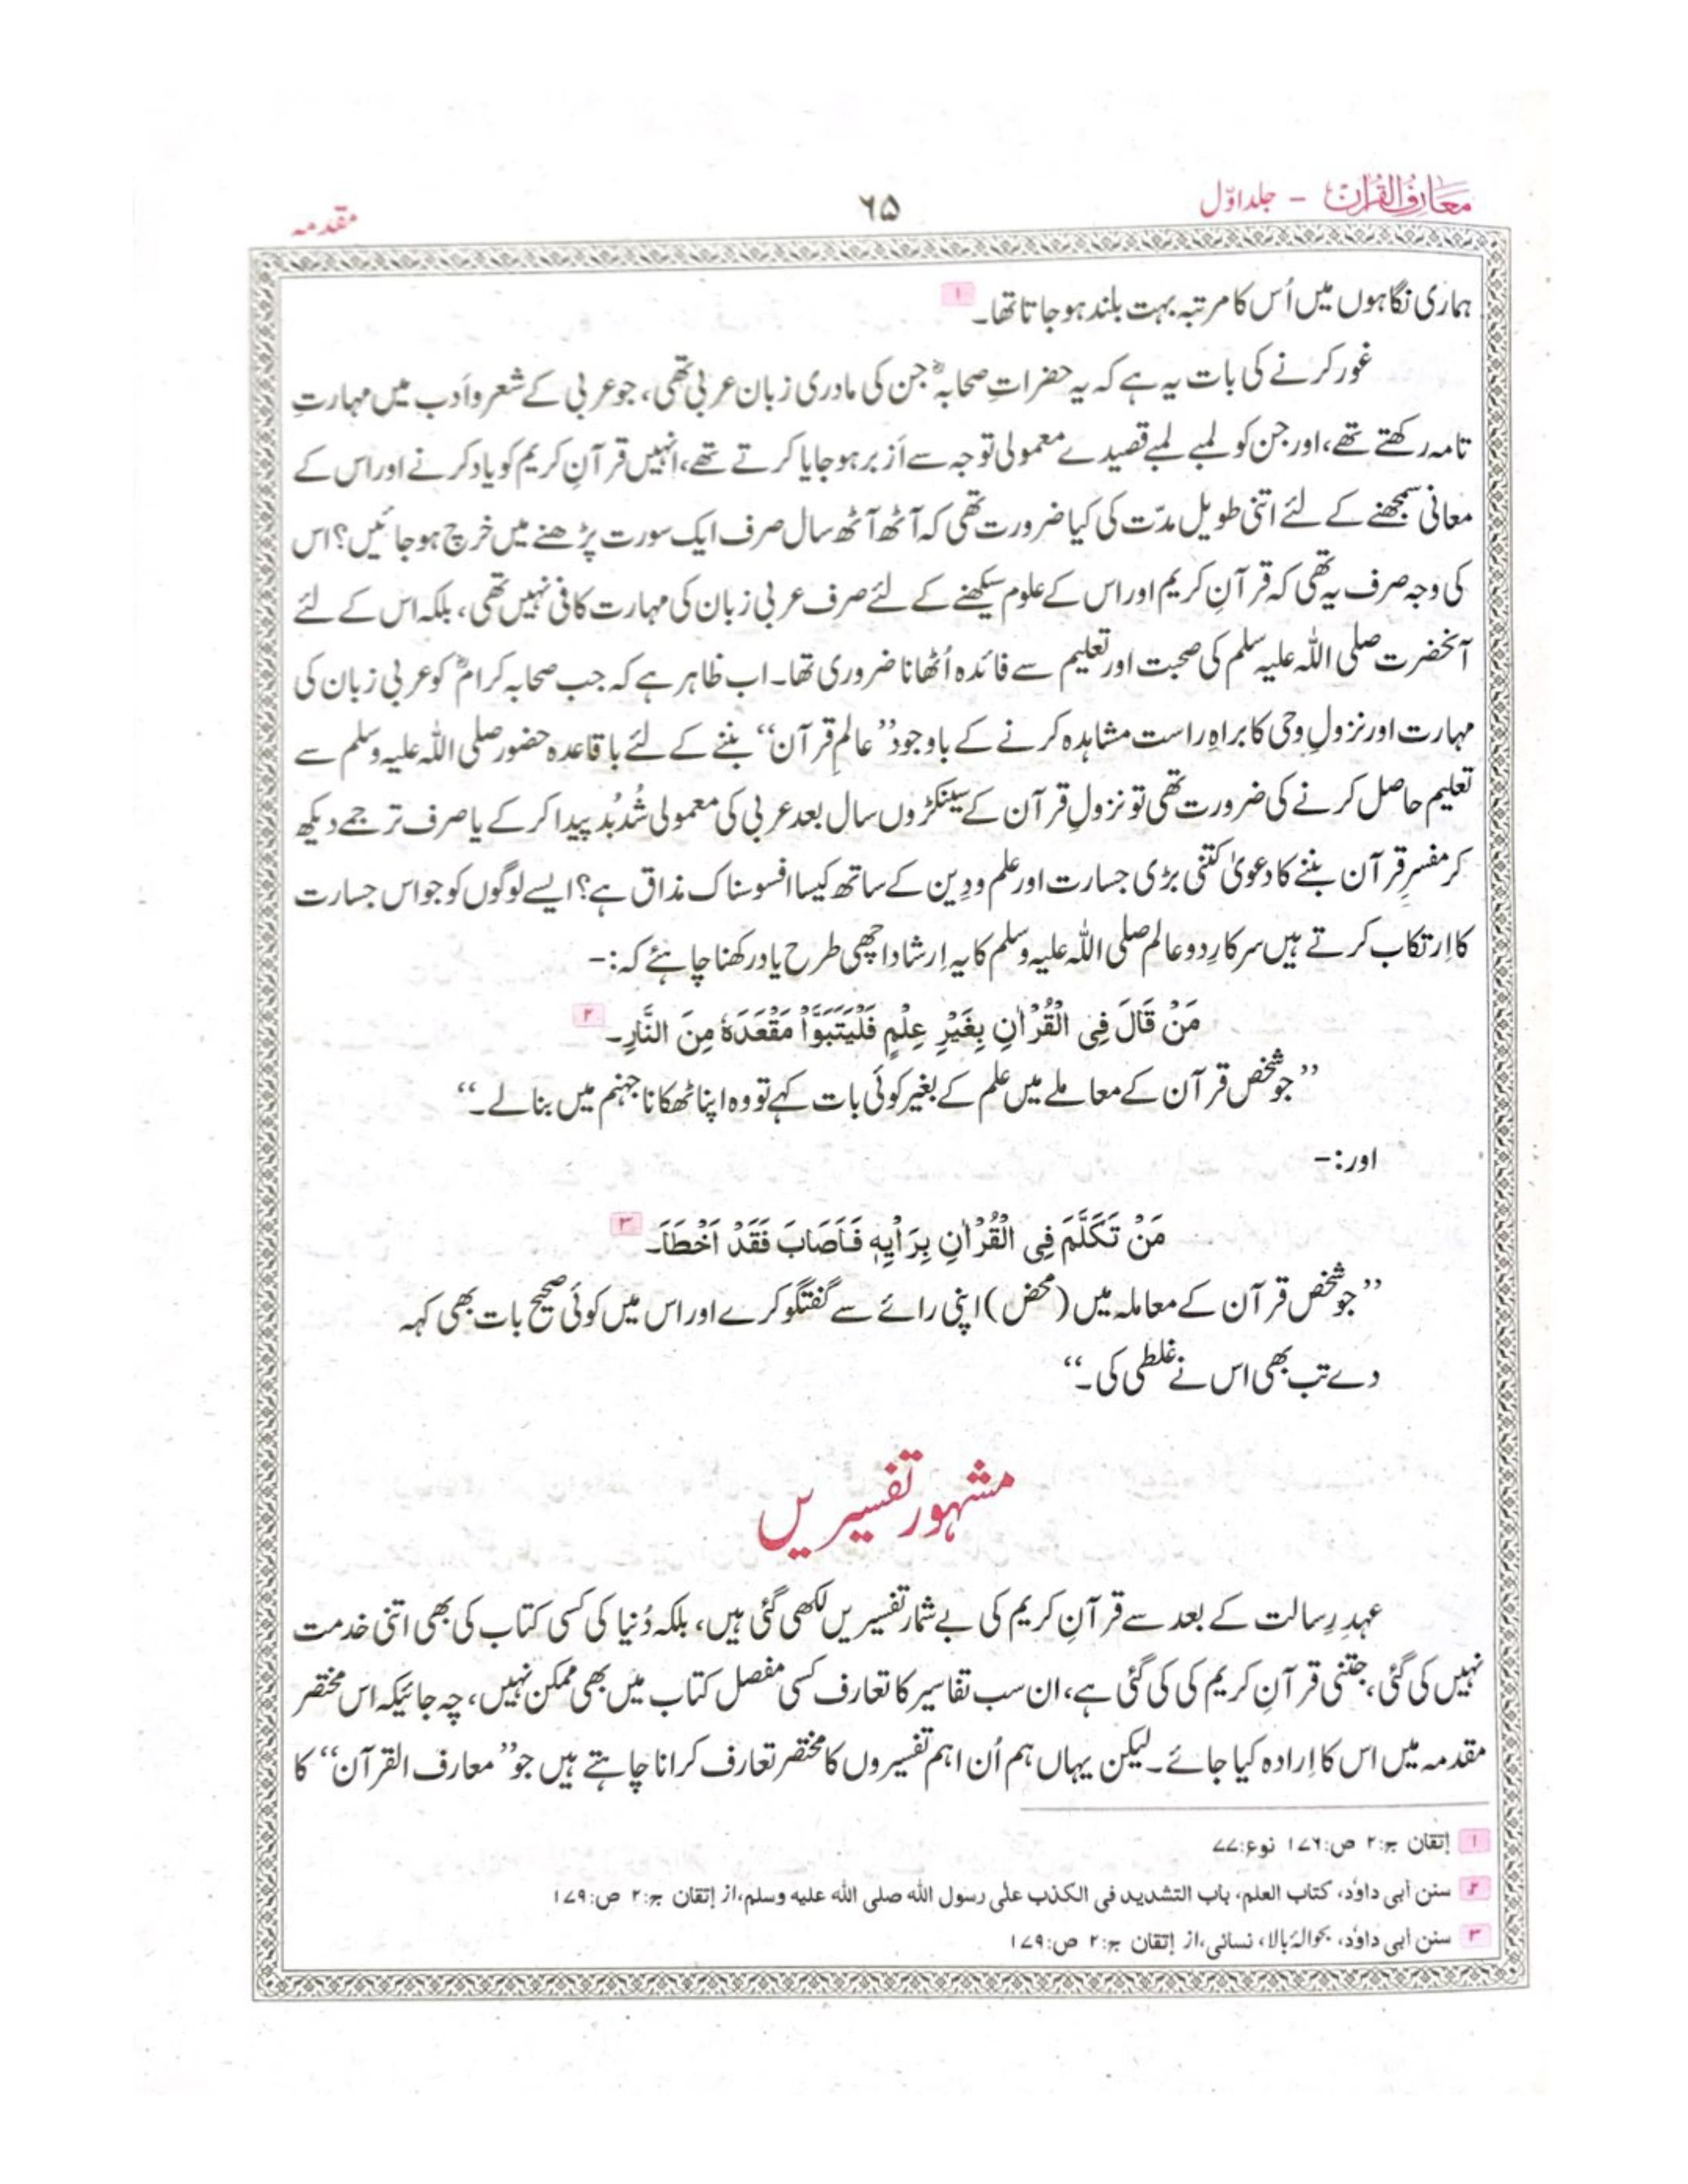 معارف القرآن – جلد اوّل
۶۵
مقدمہ
ہماری نگاہوں میں اُس کا مرتبہ بہت بلند ہو جاتا تھا۔ ۱
غور کرنے کی بات یہ ہے کہ یہ حضراتِ صحابہؓ جن کی مادری زبان عربی تھی، جو عربی کے شعر و اَدب میں مہارتِ
تامہ رکھتے تھے، اور جن کو لمبے لمبے قصیدے معمولی توجہ سے اَزبر ہو جایا کرتے تھے، انہیں قرآنِ کریم کو یاد کرنے اور اس کے
معانی سمجھنے کے لئے اتنی طویل مدّت کی کیا ضرورت تھی کہ آٹھ آٹھ سال صرف ایک سورت پڑھنے میں خرچ ہو جائیں؟ اس
کی وجہ صرف یہ تھی کہ قرآنِ کریم اور اس کے علوم سیکھنے کے لئے صرف عربی زبان کی مہارت کافی نہیں تھی، بلکہ اس کے لئے
آنحضرت صلی اللہ علیہ وسلم کی صحبت اور تعلیم سے فائدہ اُٹھانا ضروری تھا۔ اب ظاہر ہے کہ جب صحابہ کرامؓ کو عربی زبان کی
مہارت اور نزولِ وحی کا براہِ راست مشاہدہ کرنے کے باوجود ’’عالمِ قرآن‘‘ بننے کے لئے باقاعدہ حضور صلی اللہ علیہ وسلم سے
تعلیم حاصل کرنے کی ضرورت تھی تو نزولِ قرآن کے سینکڑوں سال بعد عربی کی معمولی شُدبُد پیدا کر کے یا صرف ترجمے دیکھ
کر مفسرِ قرآن بننے کا دعویٰ کتنی بڑی جسارت اور علم و دِین کے ساتھ کیسا افسوسناک مذاق ہے؟ ایسے لوگوں کو جو اس جسارت
کا اِرتکاب کرتے ہیں سرکارِ دو عالم صلی اللہ علیہ وسلم کا یہ اِرشاد اچھی طرح یاد رکھنا چاہئے کہ:–
مَنْ قَالَ فِی الْقُرْاٰنِ بِغَیْرِ عِلْمٍ فَلْیَتَبَوَّاْ مَقْعَدَہٗ مِنَ النَّارِ۔ ۲
’’جو شخص قرآن کے معاملے میں علم کے بغیر کوئی بات کہے تو وہ اپنا ٹھکانا جہنم میں بنا لے۔‘‘
اور:–
مَنْ تَکَلَّمَ فِی الْقُرْاٰنِ بِرَاْیِہٖ فَاَصَابَ فَقَدْ اَخْطَاَ۔ ۳
’’جو شخص قرآن کے معاملہ میں (محض) اپنی رائے سے گفتگو کرے اور اس میں کوئی صحیح بات بھی کہہ
دے تب بھی اس نے غلطی کی۔‘‘
مشہور تفسیریں
عہدِ رِسالت کے بعد سے قرآنِ کریم کی بے شمار تفسیریں لکھی گئی ہیں، بلکہ دُنیا کی کسی کتاب کی بھی اتنی خدمت
نہیں کی گئی، جتنی قرآنِ کریم کی کی گئی ہے، ان سب تفاسیر کا تعارف کسی مفصل کتاب میں بھی ممکن نہیں، چہ جائیکہ اس مختصر
مقدمہ میں اس کا اِرادہ کیا جائے۔ لیکن یہاں ہم اُن اہم تفسیروں کا مختصر تعارف کرانا چاہتے ہیں جو ’’معارف القرآن‘‘ کا
۱ إتقان ج:۲ ص:۱۷۶ نوع:۷۷
۲ سنن أبی داوٗد، کتاب العلم، باب التشدید فی الکذب علٰی رسول اللہ صلی اللہ علیہ وسلم، از إتقان ج:۲ ص:۱۷۹
۳ سنن أبی داوٗد، بحوالہٗ بالا، نسائی، از إتقان ج:۲ ص:۱۷۹